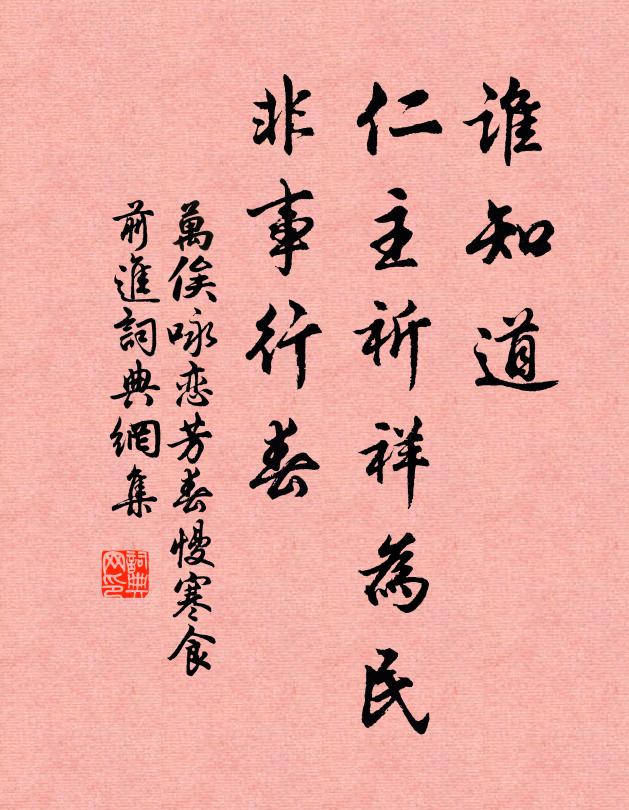 誰知道
仁主祈祥為民
非事行春
萬俟咏恋芳春慢寒食
前進詞典網集
詞典
网印